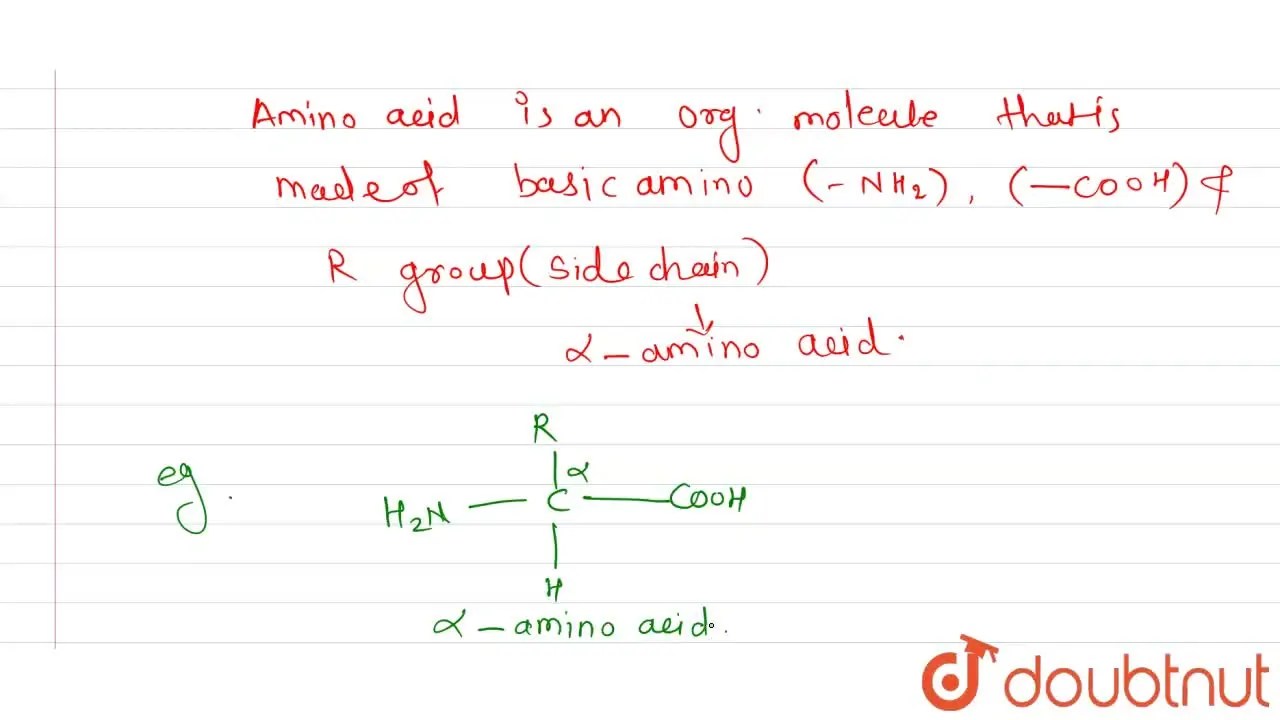 Amino acid is an org. molecule that is
made of basic amino (-NH2), (-COOH) &
R group (side chain)
α-amino acid.
R
eg.
α
H2N - C - COOH
H
α-amino acid.
doubtnut